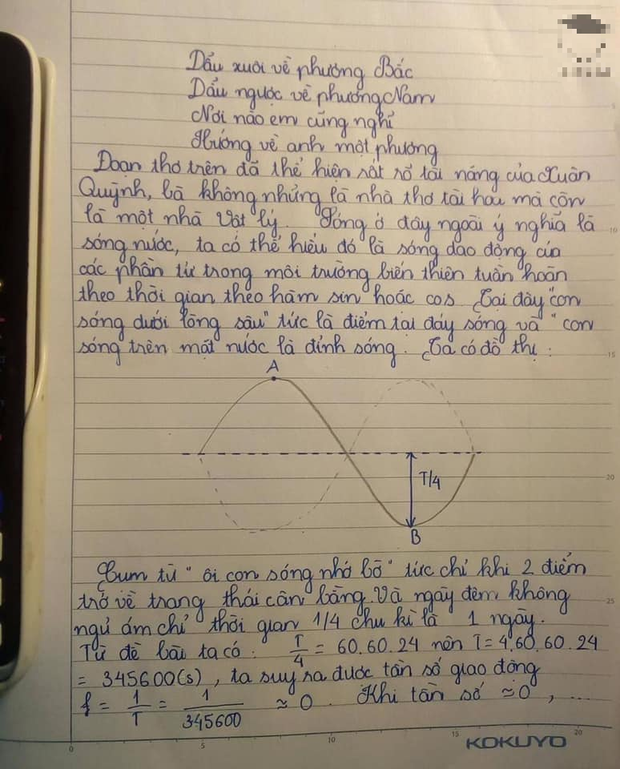 Dẩu xuôi về phương Bắc
Dẩu ngược về phương Nam
Nơi nào em cũng nghỉ
Hướng về anh một phương
Đoạn thơ trên đã thể hiện rất rõ tài năng của Xuân
Quỳnh, bà không những là nhà thơ tài hoa mà còn
là một nhà Vật lý. Sóng ở đây ngoài ý nghĩa là
sóng nước, ta có thể hiểu đó là sóng dao động của
các phần tử trong môi trường biến thiên tuần hoàn
theo thời gian theo hàm sin hoặc cos. Tại đây "con
sóng dưới lòng sâu" tức là điểm tại đáy sóng và "con
sóng trên mặt nước là đỉnh sóng. Ta có đồ thị:
A
T/4
B
Cụm từ "ôi con sóng nhớ bờ" tức chỉ khi 2 điểm
trở về trạng thái cân bằng. Và ngày đêm không
ngủ ám chỉ thời gian 1/4 chu kì là 1 ngày.
Từ đề bài ta có: T/4 = 60.60.24 nên T = 4.60.60.24
= 345600(s), ta suy ra được tần số giao động
f = 1/T = 1/345600 ≈ 0. Khi tần số ≈ 0, ...
0 5 10 15 20
KOKUYO